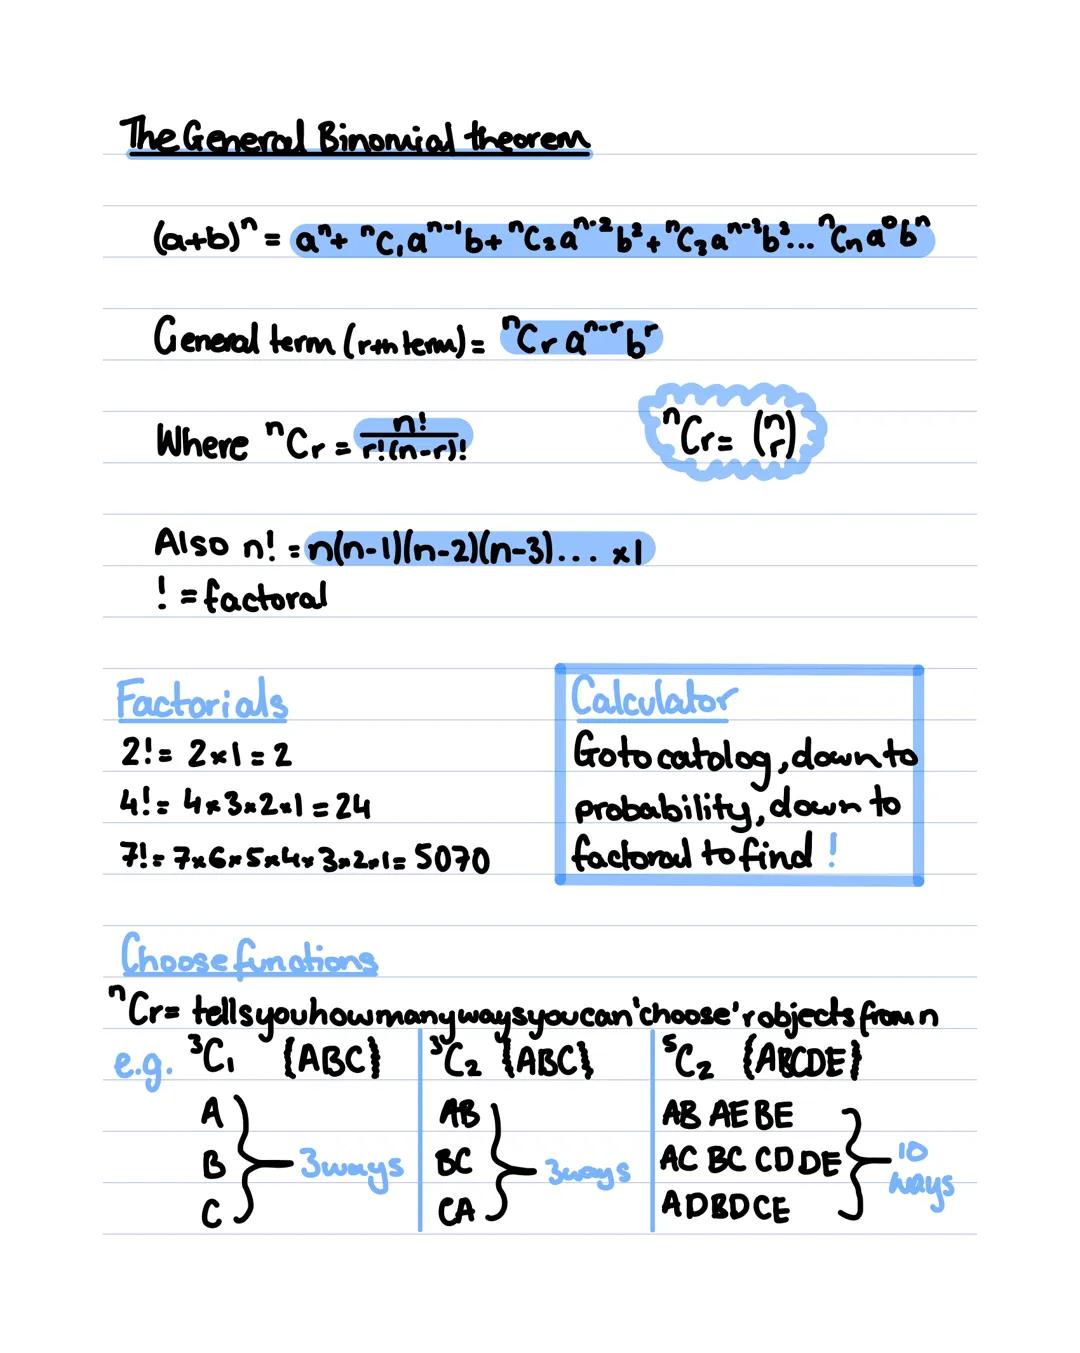 The General Binomial theorem
(a+b)ⁿ = aⁿ + ⁿC₁aⁿ⁻¹b + ⁿC₂aⁿ⁻²b² + ⁿC₃aⁿ⁻³b³... ⁿCₙa⁰bⁿ
General term (rth term) = ⁿCᵣ aⁿ⁻ʳ bʳ
Where ⁿCᵣ = n!/r!(n-r)!
ⁿCᵣ = (n r)
Also n! = n(n-1)(n-2)(n-3)... ×1
! = factoral
Factorials
2! = 2×1 = 2
4! = 4×3×2×1 = 24
7! = 7×6×5×4×3×2×1 = 5070
Calculator
Go to catolog, down to
probability, down to
factoral to find !
Choose functions
ⁿCᵣ = tells you how many ways you can 'choose' r objects from n
e.g. ³C₁ {ABC}
A
B
C
3 ways
³C₂ {ABC}
AB
BC
CA
3 ways
⁵C₂ {ABCDE}
AB AE BE
AC BC CD DE
AD BD CE
10
ways